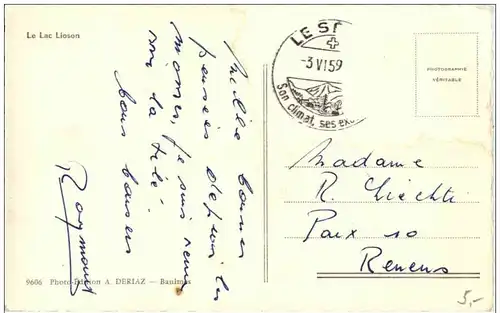 Le Lac Lioson
Mille bonnes
pensées depuis les
mosses, je suis venu
bons baisers
Raymond
9606 Photo-Edition A. DERIAZ — Baulmes
LE S
-3 VI 59
Son climat, ses ex
PHOTOGRAPHIE
VÉRITABLE
Madame
R. Liechti
Paix 10
Renens
5,-